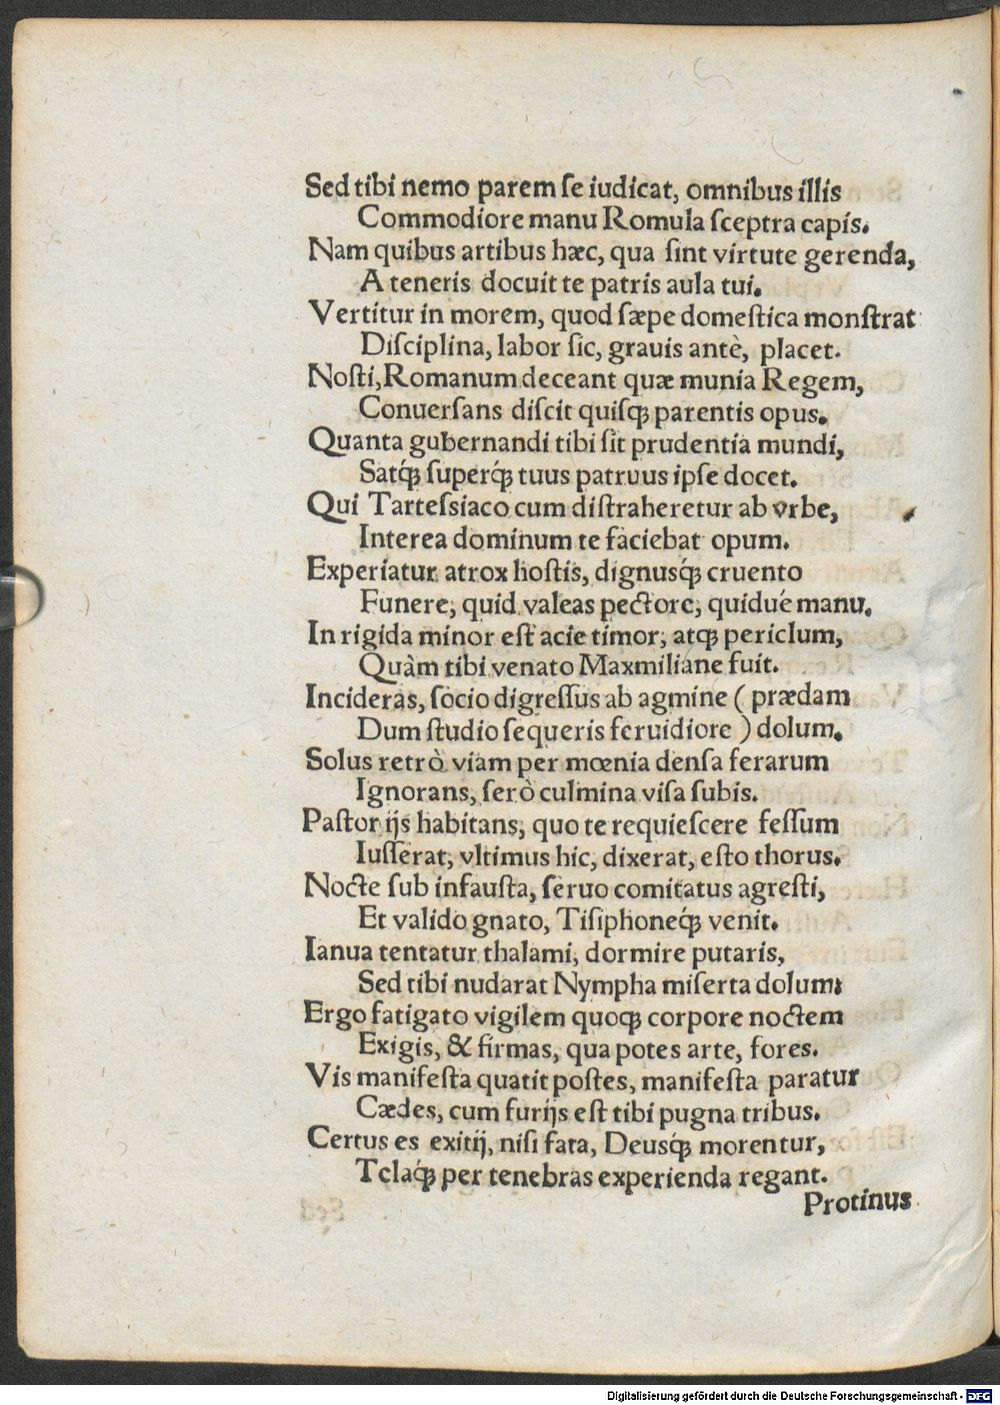 Sed tibi nemo parem ſe iudicat, omnibus illis
Commodiore manu Romula ſceptra capis.
Nam quibus artibus hæc, qua ſint virtute gerenda,
A teneris docuit te patris aula tui.
Vertitur in morem, quod ſæpe domeſtica monſtrat
Diſciplina, labor ſic, grauis antè, placet.
Noſti, Romanum deceant quæ munia Regem,
Conuerſans diſcit quiſqꝫ parentis opus.
Quanta gubernandi tibi ſit prudentia mundi,
Satqꝫ́ ſuperqꝫ́ tuus patruus ipſe docet.
Qui Tarteſsiaco cum diſtraheretur ab vrbe,
Interea dominum te faciebat opum.
Experiatur atrox hoſtis, dignusqꝫ́ cruento
Funere, quid valeas pectore, quidué manu.
In rigida minor eſt acie timor, atqꝫ periclum,
Quàm tibi venato Maxmiliane fuit.
Incideras, ſocio digreſſus ab agmine ( prædam
Dum ſtudio ſequeris feruidiore ) dolum.
Solus retrò viam per mœnia denſa ferarum
Ignorans, ſerò culmina viſa ſubis.
Paſtor ijs habitans, quo te requieſcere feſſum
Iuſſerat, vltimus hic, dixerat, eſto thorus.
Nocte ſub infauſta, ſeruo comitatus agreſti,
Et valido gnato, Tiſiphoneqꝫ́ venit.
Ianua tentatur thalami, dormire putaris,
Sed tibi nudarat Nympha miſerta dolum:
Ergo fatigato vigilem quoqꝫ corpore noctem
Exigis, & firmas, qua potes arte, fores.
Vis manifeſta quatit poſtes, manifeſta paratur
Cædes, cum furijs eſt tibi pugna tribus.
Certus es exitij, niſi fata, Deusqꝫ́ morentur,
Telaqꝫ́ per tenebras experienda regant.
Protinus
Digitalisierung gefördert durch die Deutsche Forschungsgemeinschaft - DFG